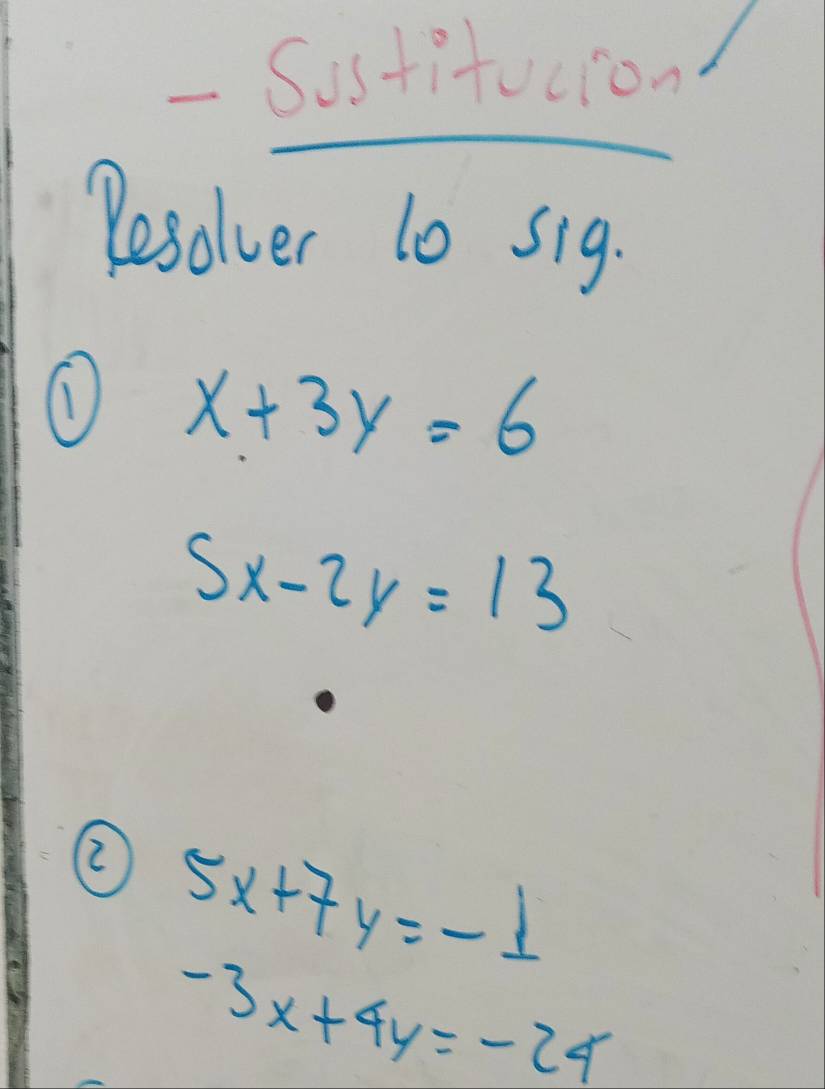 - Sustitución
Resolver lo sig.
① x + 3y = 6
5x - 2y = 13
② 5x + 7y = -1
-3x + 4y = -24